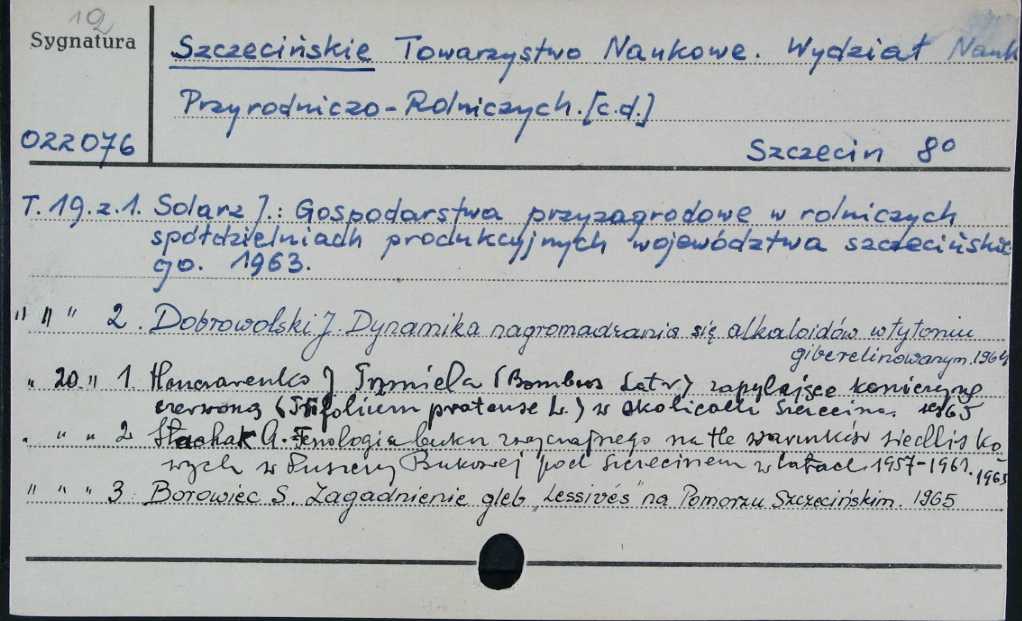 12
Sygnatura
022076
Szczecińskie Towarzystwo Naukowe. Wydział Nauk
Przyrodniczo-Rolniczych. [c.d.]
Szczecin 8°
T. 19. z. 1. Solarz J.: Gospodarstwa przyzagrodowe w rolniczych
spółdzielniach produkcyjnych województwa szczecińskie
go. 1963.
" " " 2. Dobrowolski J. Dynamika nagromadzania się alkaloidów w tytoniu
giberelinowanym. 1964
" 20. " 1. Honczarenko J Trzmiela (Bombus Latr) zapylające koniczynę
czerwoną (Trifolium pratense L.) w okolicach Szczecina. 1965
" " " 2 Stachak A. Fenologia buka zwyczajnego na tle warunków siedlisko
wych w Puszczy Bukowej pod Szczecinem w latach 1957-1961. 1965
" " " 3. Borowiec S. Zagadnienie gleb „Lessivés" na Pomorzu Szczecińskim. 1965